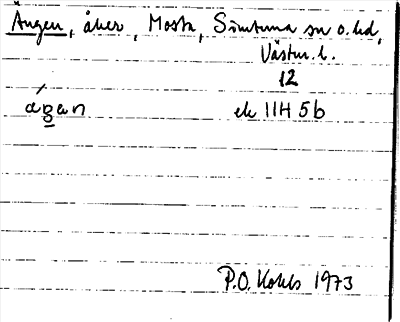 Ängen, åker, Mosta, Simtuna sn o. hd,
Västm. l.
12
ágan
ek 11H 5b
P.O. Kohls 1973